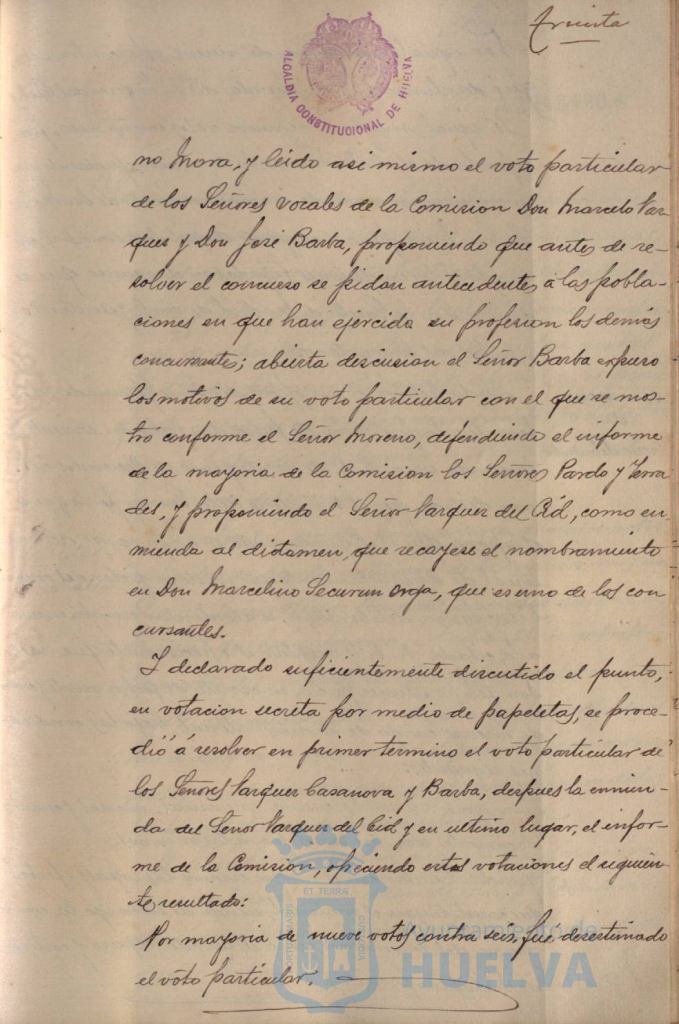 Treinta
ALCALDIA CONSTITUCIONAL DE HUELVA
no Mora, y leido asi mismo el voto particular
de los Señores vocales de la Comision Don Marcelo Vaz
quez y Don José Barba, proponiendo que antes de re-
solver el concurso se pidan antecedentes á las pobla-
ciones en que han ejercido su profesion los demás
concursantes; abierta discusion el Señor Barba expuso
los motivos de su voto particular con el que se mos-
tró conforme el Señor Moreno, defendiendo el informe
de la mayoria de la Comision los Señores Pardo y Terra
des, y proponiendo el Señor Vazquez del Cid, como en-
mienda al dictamen, que recayese el nombramiento
en Don Marcelino, que es uno de los con
cursantes.
Y declarado suficientemente discutido el punto,
en votacion secreta por medio de papeletas, se proce-
dió á resolver en primer termino el voto particular de
los Señores Vazquez Casanova y Barba, despues la enmien-
da del Señor Vazquez del Cid y en ultimo lugar, el infor-
me de la Comision, ofreciendo estas votaciones el siguien-
te resultado:
Por mayoria de nueve votos contra seis, fue desestimado
el voto particular.
ET TERRA
Ayuntamiento de
HUELVA